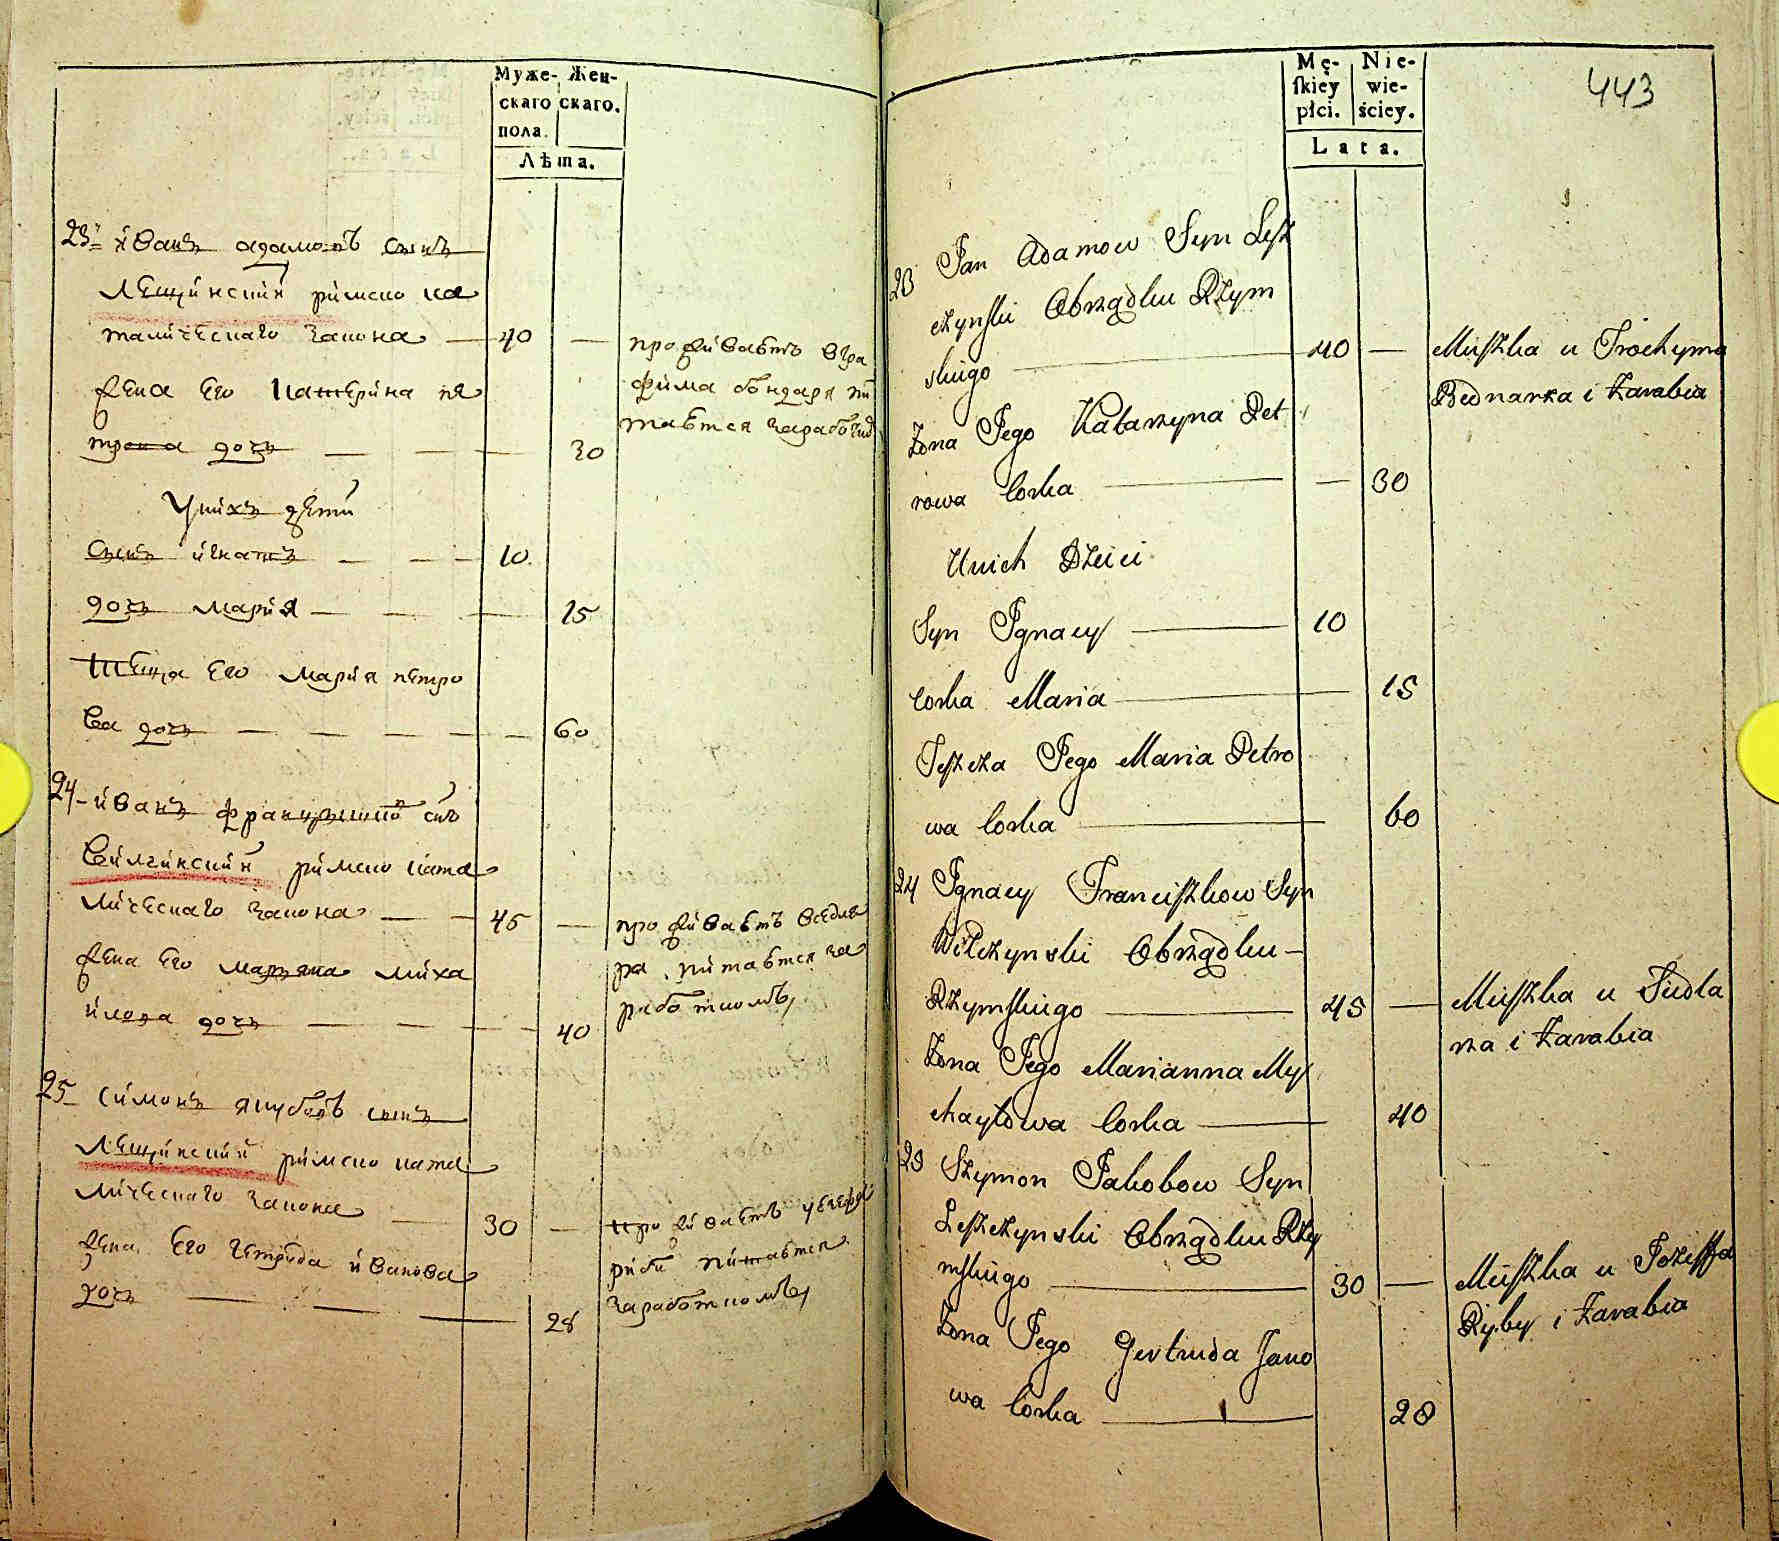 Муже- Жен-
скаго скаго.
пола.
Лѣта.
23. иванъ адамовъ сынъ
лещинский римско ка
толическаго закона — 40 —
проживаетъ втра
фима бондаря пи
тается заработко
жена его катерина пе
трова дочь — — — 30
Уних дети
сынъ игнатъ — — — 10
дочь мария — — — 15
теща его мария петро
ва дочь — — — — — 60
24 иванъ францишковъ снъ
вилчинский римско като
лическаго закона — — 45 —
проживаетъ вседля
ра питается за
работкомъ
жена его марьяна миха
илова дочь — — — — 40
25 симонъ якубовъ сынъ
лещинский римско като
лическаго закона — 30 —
проживаетъ
риби питается
заработкомъ
жена его гетруда иванова
дочь — — — 28
443
Mę- Nie-
ſkiey wie-
płci. ściey.
Lata.
23 Jan Adamow Syn Leſz
czynſki Obrządku Rzym
skiego — 40 —
Mieſzka u Trochyma
Bednarza i Zarabia
Zona Jego Katarzyna Pet
rowa Corka — — 30
Unich Dzieci
Syn Jgnacy — 10
Corka Maria — 15
Teſzcza Jego Maria Petro
wa Corka — 60
24 Jgnacy Franciſzkow Syn
Wilczynski Obrządku —
Rzymſkiego — 45 —
Mieſzka u Siodla
rza i Zarabia
Zona Jego Marianna My
chayłowa Corka — 40
25 Szymon Jakobow Syn
Leſzczynski Obrządku Rzy
mſkiego — 30 —
Mieſzka u Jozeffa
Ryby i Zarabia
Zona Jego Gertruda Jano
wa Corka — 28